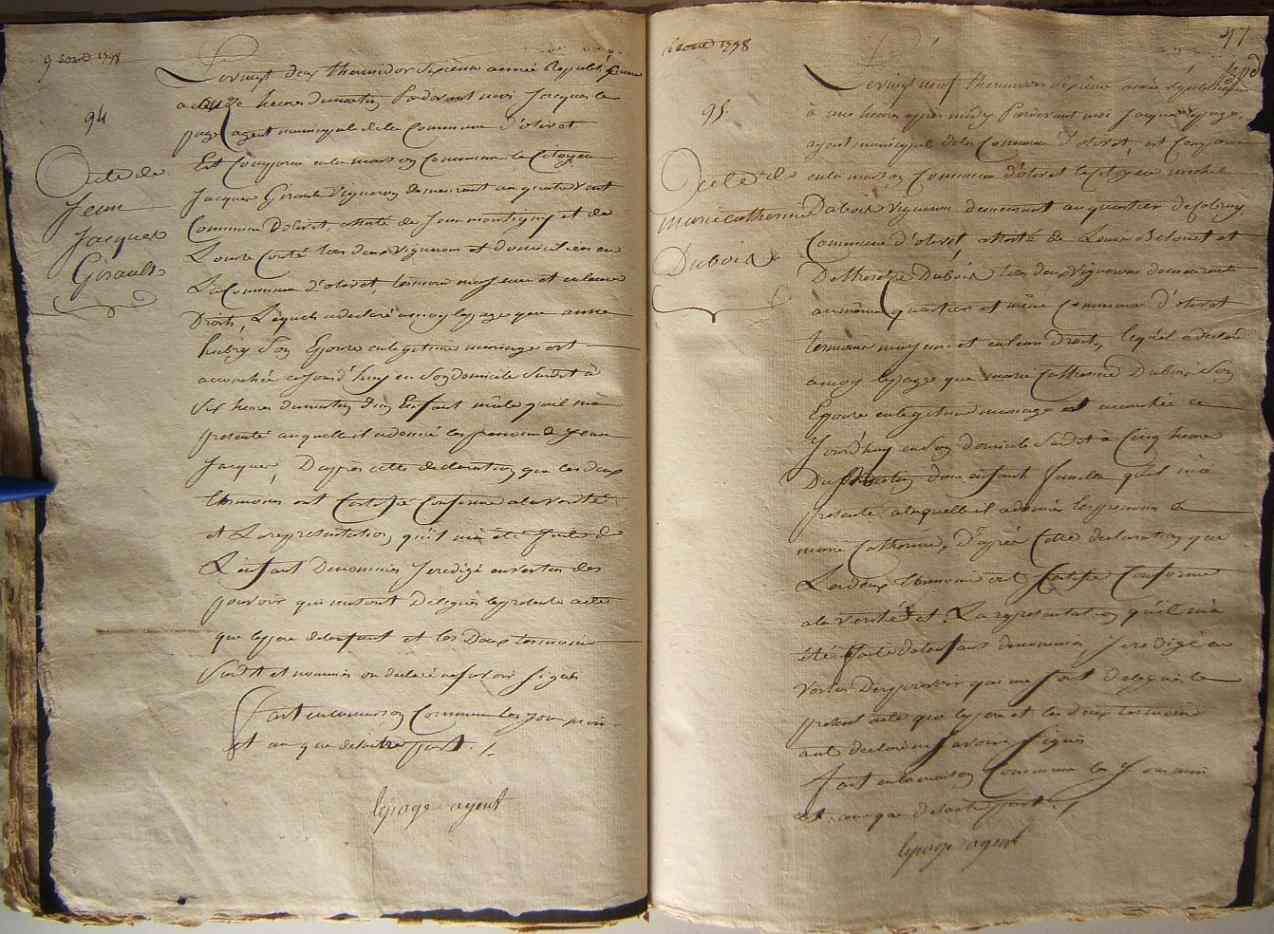 9 aoust 1798
94
acte de
Jean
Jacques
Girault
Le vingt deux thermidor sixieme année Republicaine
a heures du matin Pardevant moi Jacques le
page agent municipal de la Commune d'olivet
Est Comparu en la maison Commune le Citoyen
Jacques Girault Vigneron demeurant au quartier
Commune d'olivet assisté de Jean montigny et de
Louis tous deux Vignerons et domiciliés en
La Commune d'olivet, temoins majeurs et en leurs
Droits, Lequel a declaré a moy lepage que anne
hubry Son Epouse en legitime mariage est
accouchée ce Jourd'huy en Son domicile Susdit à
Six heures du matin d'un Enfant mâle qu'il m'a
presenté auquel il a donné les prenoms de Jean
Jacques, D'apres cette declaration que les deux
temoins ont Certifié Conforme a la verité
et La representation qu'il m'a été faite de
L'enfant Denommé, J'ai redigé en vertu des
pouvoirs qui me sont Delegués le present acte
que le pere de l'enfant et les Deux temoins
Susdits et nommés ont declaré ne savoir signer
Fait en la maison Commune les jour mois
et an que de l'autre part ./.
lepage agent
aoust 1798
47
95
Acte de
marie catherine
Dubois
Le vingt neuf thermidor sixieme année republicaine
à une heure apres midy Pardevant moi Jacques lepage,
agent municipal de la Commune d'olivet, est Comparu
en la maison Commune d'olivet le Citoyen michel
Dubois Vigneron demeurant au quartier de
Commune d'olivet, assisté de Louis et
De therese Dubois tous deux Vignerons demeurants
au même quartier et même Commune d'olivet
temoins majeurs et en leurs Droits, lequel a declaré
a moy lepage que marie Catherine Dubois Son
Epouse en legitime mariage est accouchée ce
Jourd'huy en Son domicile Susdit à Cinq heures
Du matin d'un enfant femelle qu'il m'a
presenté a laquelle il a donné les prenoms de
marie Catherine, D'après Cette declaration que
Les deux temoins ont Certifié Conforme
a la verité et La representation qu'il m'a
été faite de l'enfant denommé, J'ai redigé en
vertu Des pouvoirs qui me sont delegués le
present acte que le pere et les deux temoins
ont declaré ne savoir signer
Fait en la maison Commune les Jour mois
et an que de l'autre part ./.
lepage agent